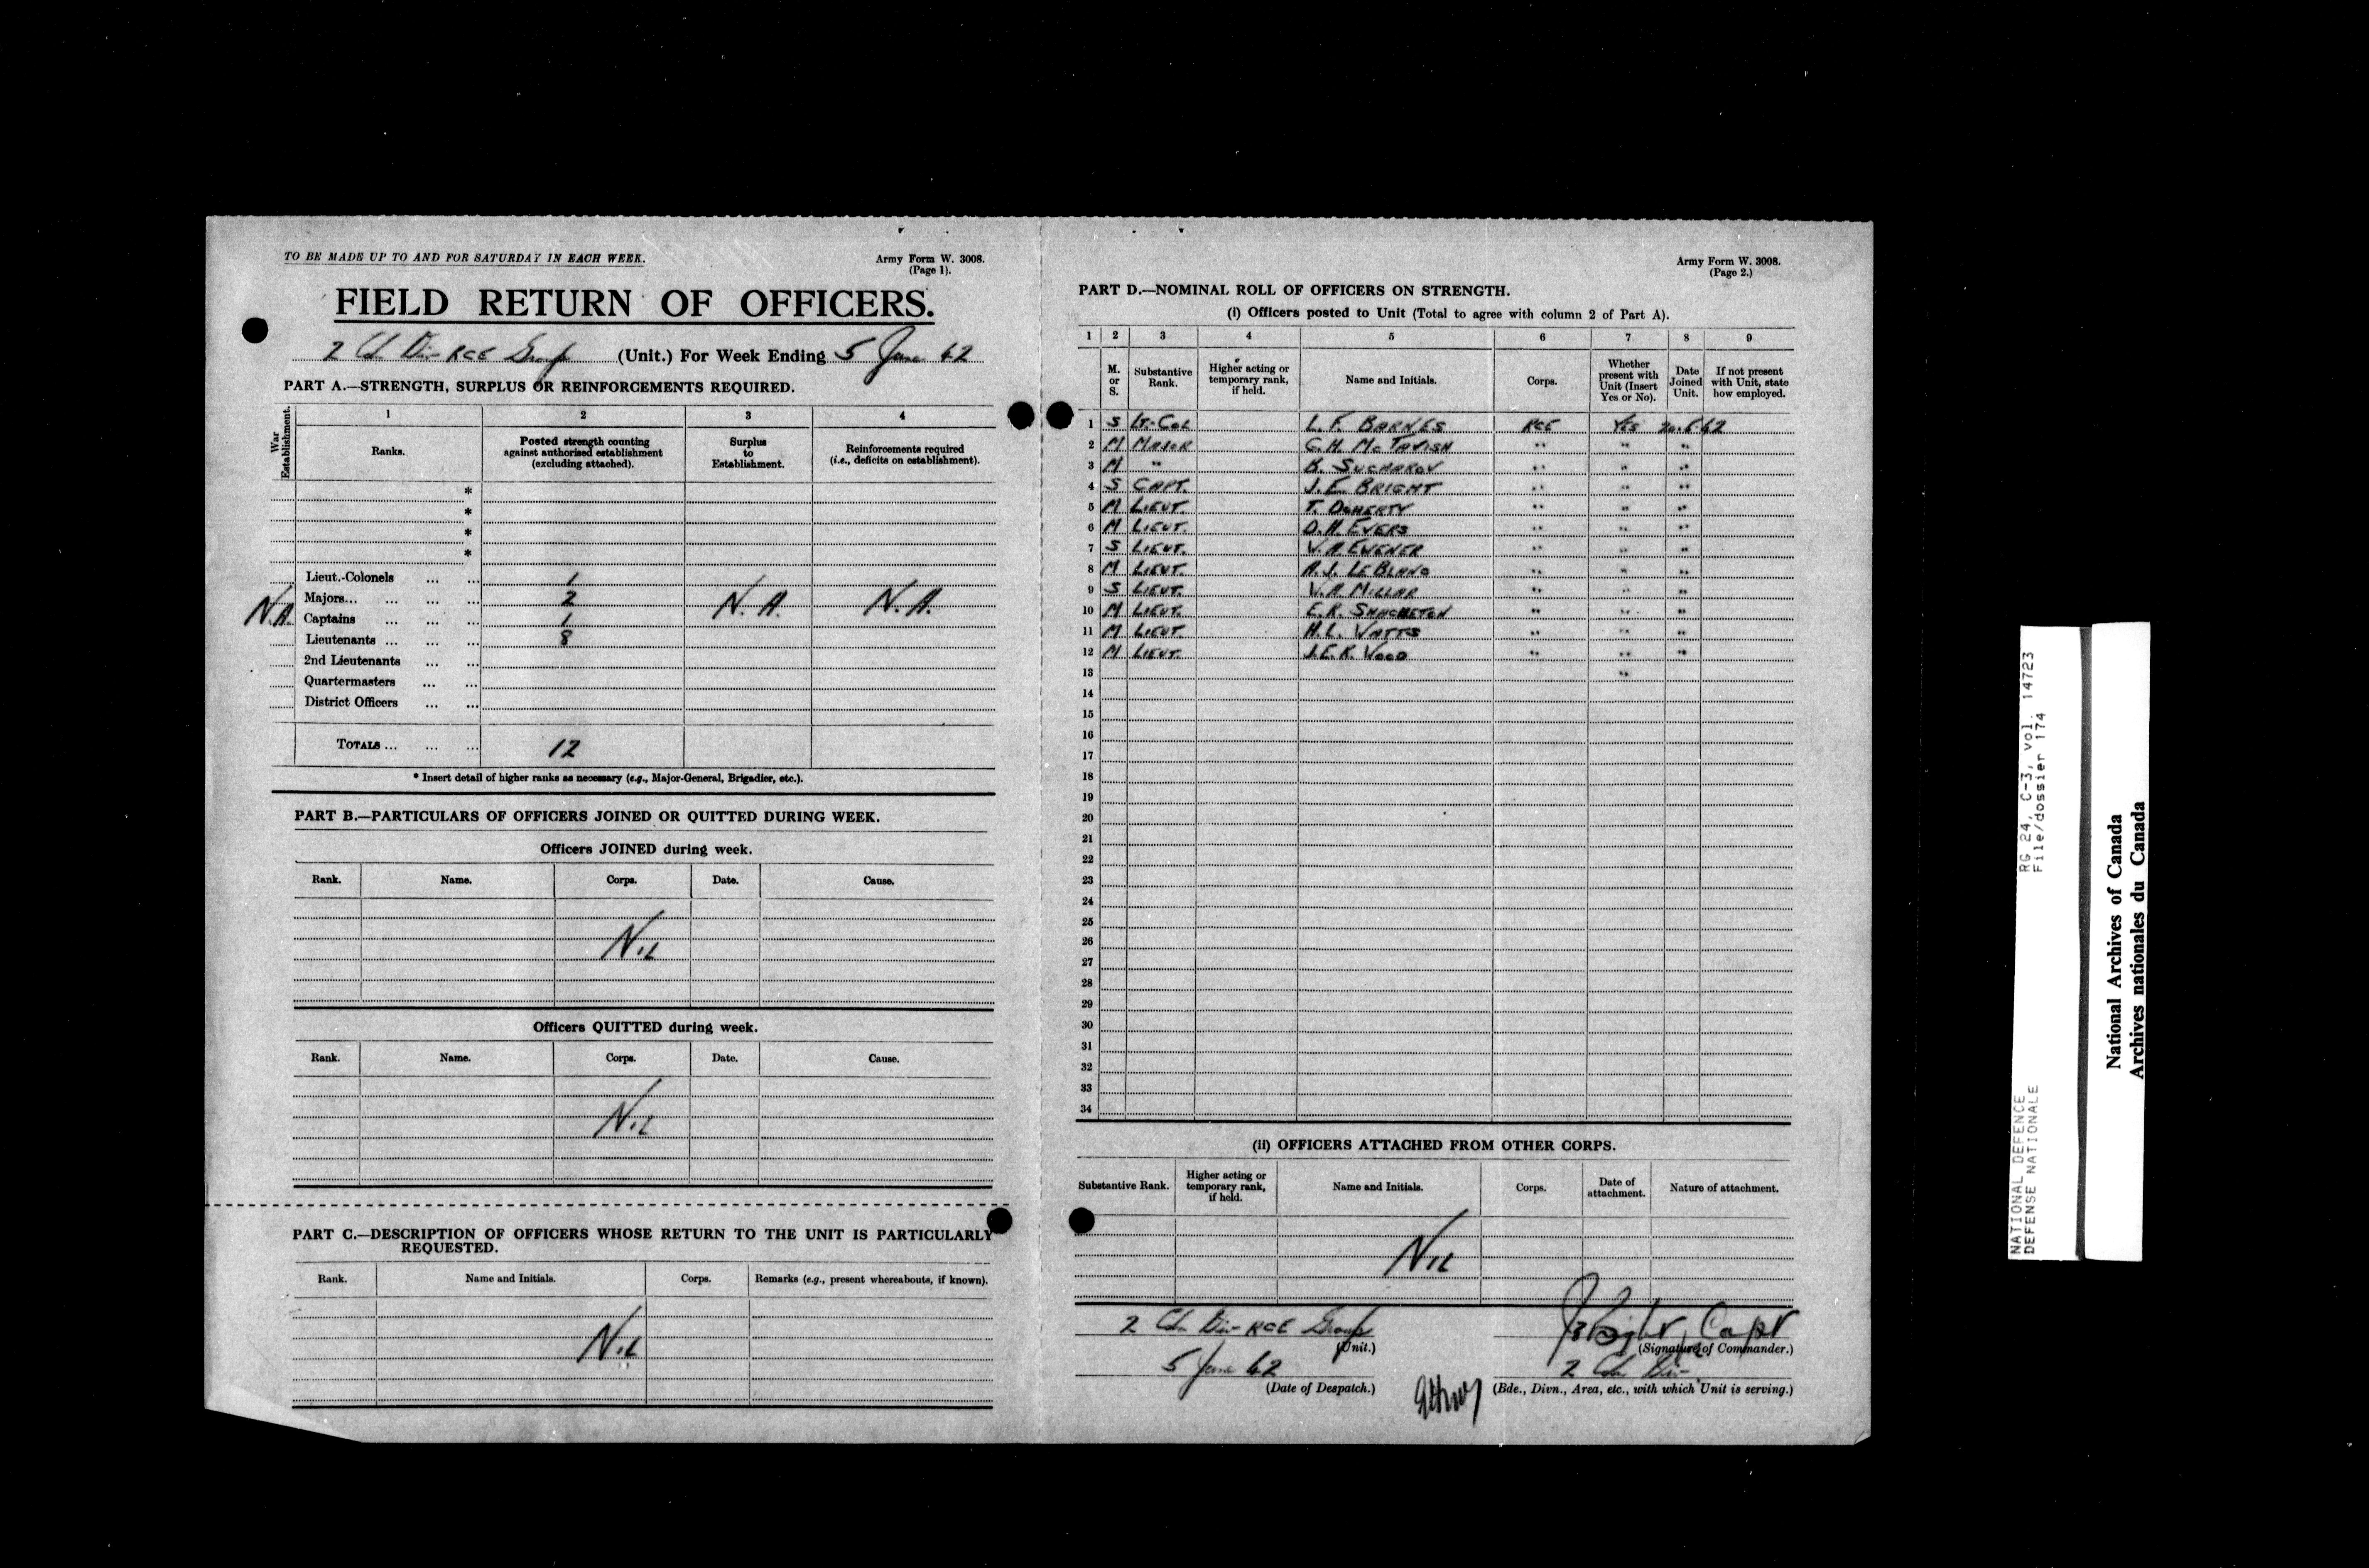 TO BE MADE UP TO AND FOR SATURDAY IN EACH WEEK.
Army Form W. 3008.
(Page 1).
FIELD RETURN OF OFFICERS.
2 Cdn Div RCE Group (Unit.) For Week Ending 5 June 42
PART A.—STRENGTH, SURPLUS OR REINFORCEMENTS REQUIRED.
War Establishment.
1 2 3 4
Ranks.
Posted strength counting against authorised establishment (excluding attached).
Surplus to Establishment.
Reinforcements required (i.e., deficits on establishment).
*
*
*
*
Lieut.-Colonels ... ... 1
Majors... ... ... ... 2 N.A. N.A.
N.A. Captains ... ... ... 1
Lieutenants ... ... ... 8
2nd Lieutenants ... ...
Quartermasters ... ...
District Officers ... ...
TOTALS ... ... ... 12
* Insert detail of higher ranks as necessary (e.g., Major-General, Brigadier, etc.).
PART B.—PARTICULARS OF OFFICERS JOINED OR QUITTED DURING WEEK.
Officers JOINED during week.
Rank. Name. Corps. Date. Cause.
Nil
Officers QUITTED during week.
Rank. Name. Corps. Date. Cause.
Nil
PART C.—DESCRIPTION OF OFFICERS WHOSE RETURN TO THE UNIT IS PARTICULARLY
REQUESTED.
Rank. Name and Initials. Corps. Remarks (e.g., present whereabouts, if known).
Nil
Army Form W. 3008.
(Page 2.)
PART D.—NOMINAL ROLL OF OFFICERS ON STRENGTH.
(i) Officers posted to Unit (Total to agree with column 2 of Part A).
1 2 3 4 5 6 7 8 9
M. or S.
Substantive Rank.
Higher acting or temporary rank, if held.
Name and Initials.
Corps.
Whether present with Unit (Insert Yes or No).
Date Joined Unit.
If not present with Unit, state how employed.
1 S Lt-Col L.F. BARNES RCE YES 42
2 M MAJOR G.H. McTAVISH " " "
3 M " B. SUCHAROV " " "
4 S CAPT. J.E. BRIGHT " " "
5 M LIEUT. T. DOHERTY " " "
6 M LIEUT. D.H. EVERS " " "
7 S LIEUT. EWENER " " "
8 M LIEUT. A.J. LEBLANC " " "
9 S LIEUT. MILLAR " " "
10 M LIEUT. E.K. " " "
11 M LIEUT. H.L. WATTS " " "
12 M LIEUT. J.E.R. WOOD " " "
13 "
14
15
16
17
18
19
20
21
22
23
24
25
26
27
28
29
30
31
32
33
34
(ii) OFFICERS ATTACHED FROM OTHER CORPS.
Substantive Rank. Higher acting or temporary rank, if held. Name and Initials. Corps. Date of attachment. Nature of attachment.
Nil
2 Cdn Div RCE Group
(Unit.)
JEBright, Capt
(Signature of Commander.)
5 June 42
(Date of Despatch.)
2 Cdn Div
(Bde., Divn., Area, etc., with which Unit is serving.)
NATIONAL DEFENCE RG 24, C-3, vol. 14723
DEFENSE NATIONALE File/dossier 174
National Archives of Canada
Archives nationales du Canada